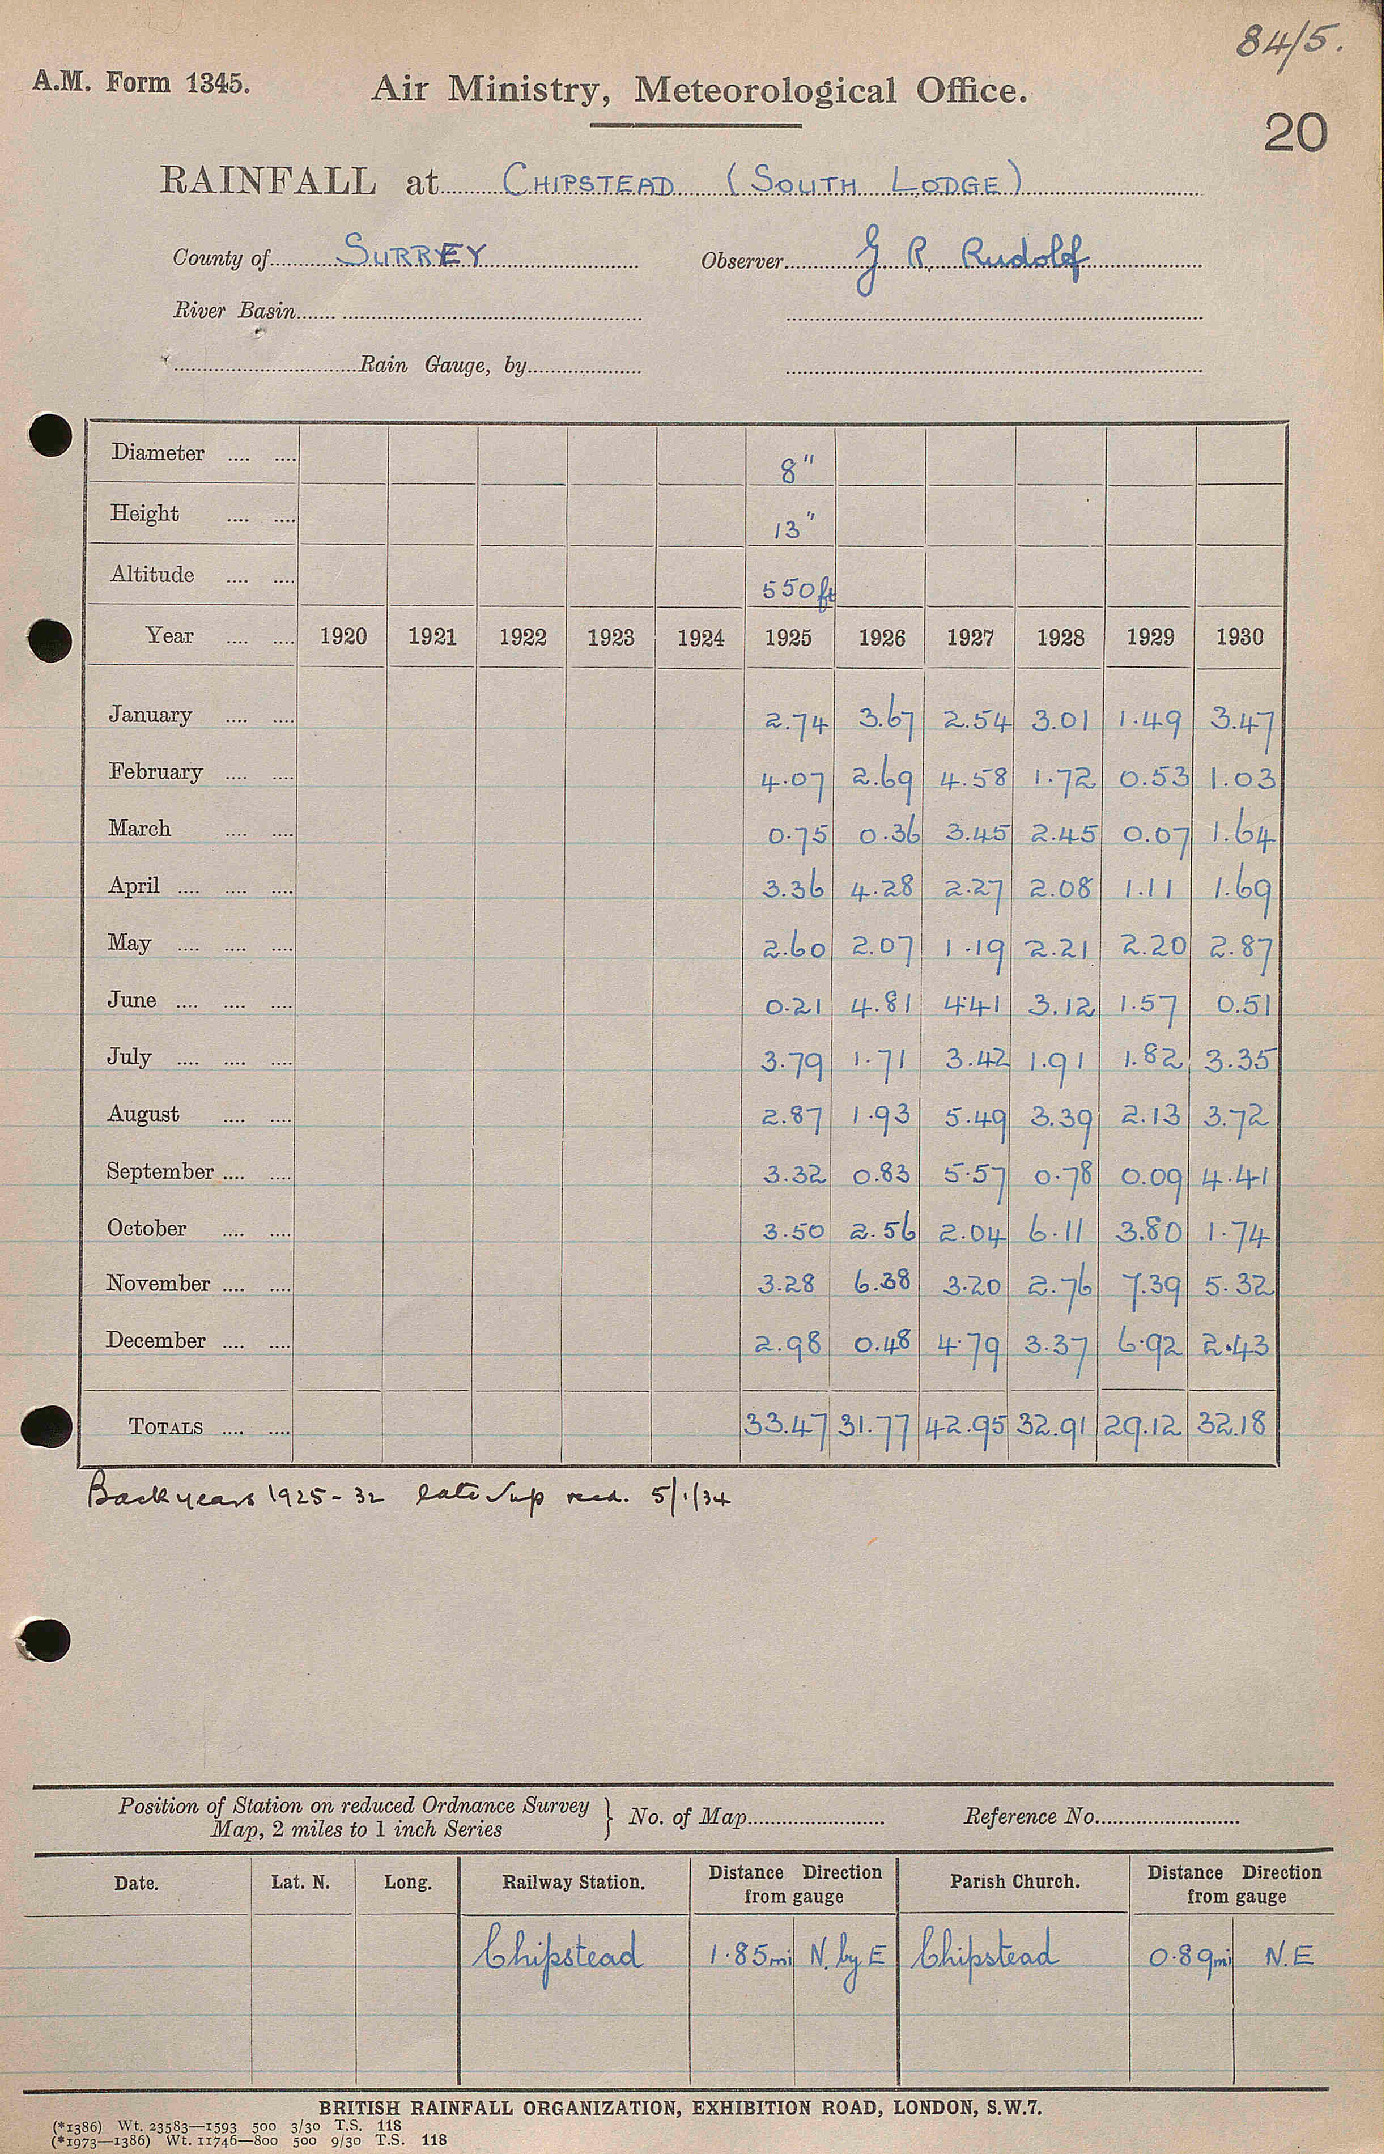 84/5.
A.M. Form 1345. Air Ministry, Meteorological Office.
20
RAINFALL at CHIPSTEAD (SOUTH LODGE)
County of SURREY Observer G R Rudolf
River Basin
Rain Gauge, by
Diameter 8"
Height 13"
Altitude 550 ft
Year 1920 1921 1922 1923 1924 1925 1926 1927 1928 1929 1930
January 2.74 3.67 2.54 3.01 1.49 3.47
February 4.07 2.69 4.58 1.72 0.53 1.03
March 0.75 0.36 3.45 2.45 0.07 1.64
April 3.36 4.28 2.27 2.08 1.11 1.69
May 2.60 2.07 1.19 2.21 2.20 2.87
June 0.21 4.81 4.41 3.12 1.57 0.51
July 3.79 1.71 3.42 1.91 1.82 3.35
August 2.87 1.93 5.49 3.39 2.13 3.72
September 3.32 0.83 5.57 0.78 0.09 4.41
October 3.50 2.56 2.04 6.11 3.80 1.74
November 3.28 6.38 3.20 2.76 7.39 5.32
December 2.98 0.48 4.79 3.37 6.92 2.43
TOTALS 33.47 31.77 42.95 32.91 29.12 32.18
Back years 1925-32 late sup recd. 5/1/34
Position of Station on reduced Ordnance Survey
Map, 2 miles to 1 inch Series } No. of Map Reference No.
Date. Lat. N. Long. Railway Station. Distance Direction from gauge Parish Church. Distance Direction from gauge
Chipstead 1.85mi N. by E Chipstead 0.89mi N.E
BRITISH RAINFALL ORGANIZATION, EXHIBITION ROAD, LONDON, S.W.7.
(*1386) Wt. 23583—1593 500 3/30 T.S. 118
(*1973—1386) Wt. 11746—800 500 9/30 T.S. 118